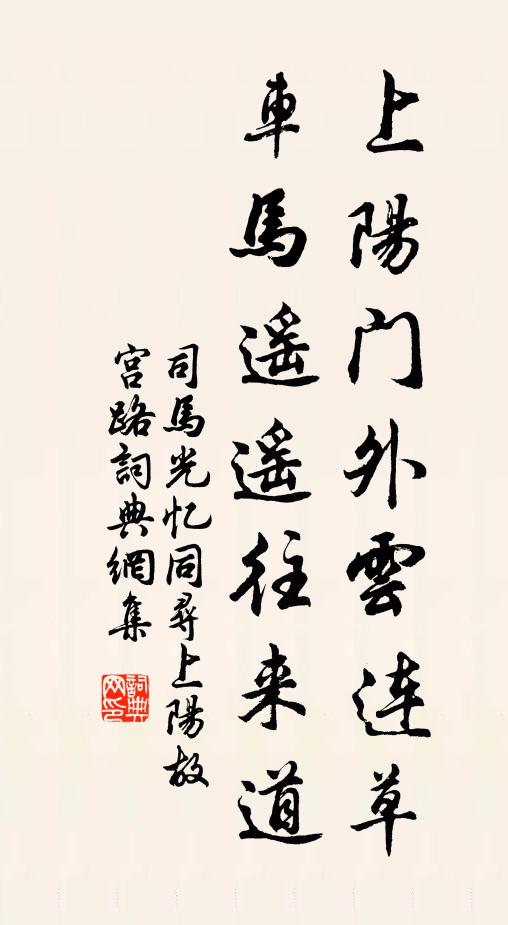 上陽门外雲连草
車馬遥遥往来道
司馬光忆同尋上陽故
宫路詞典網集
詞典
网印